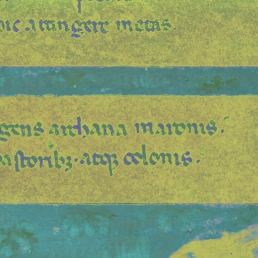 hic attingere metas.
gens archana maronis.
pastoribꝫ· atqꝫ colonis.